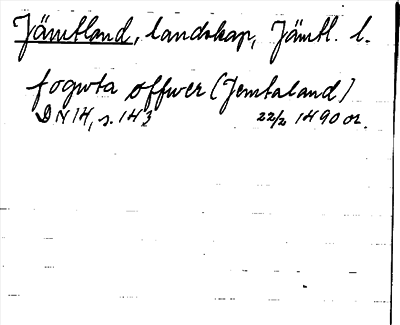 Jämtland, landskap, Jämtl. l.
fogwta offwer (Jemtaland)
DN 14, s. 143 22/2 1490 or.